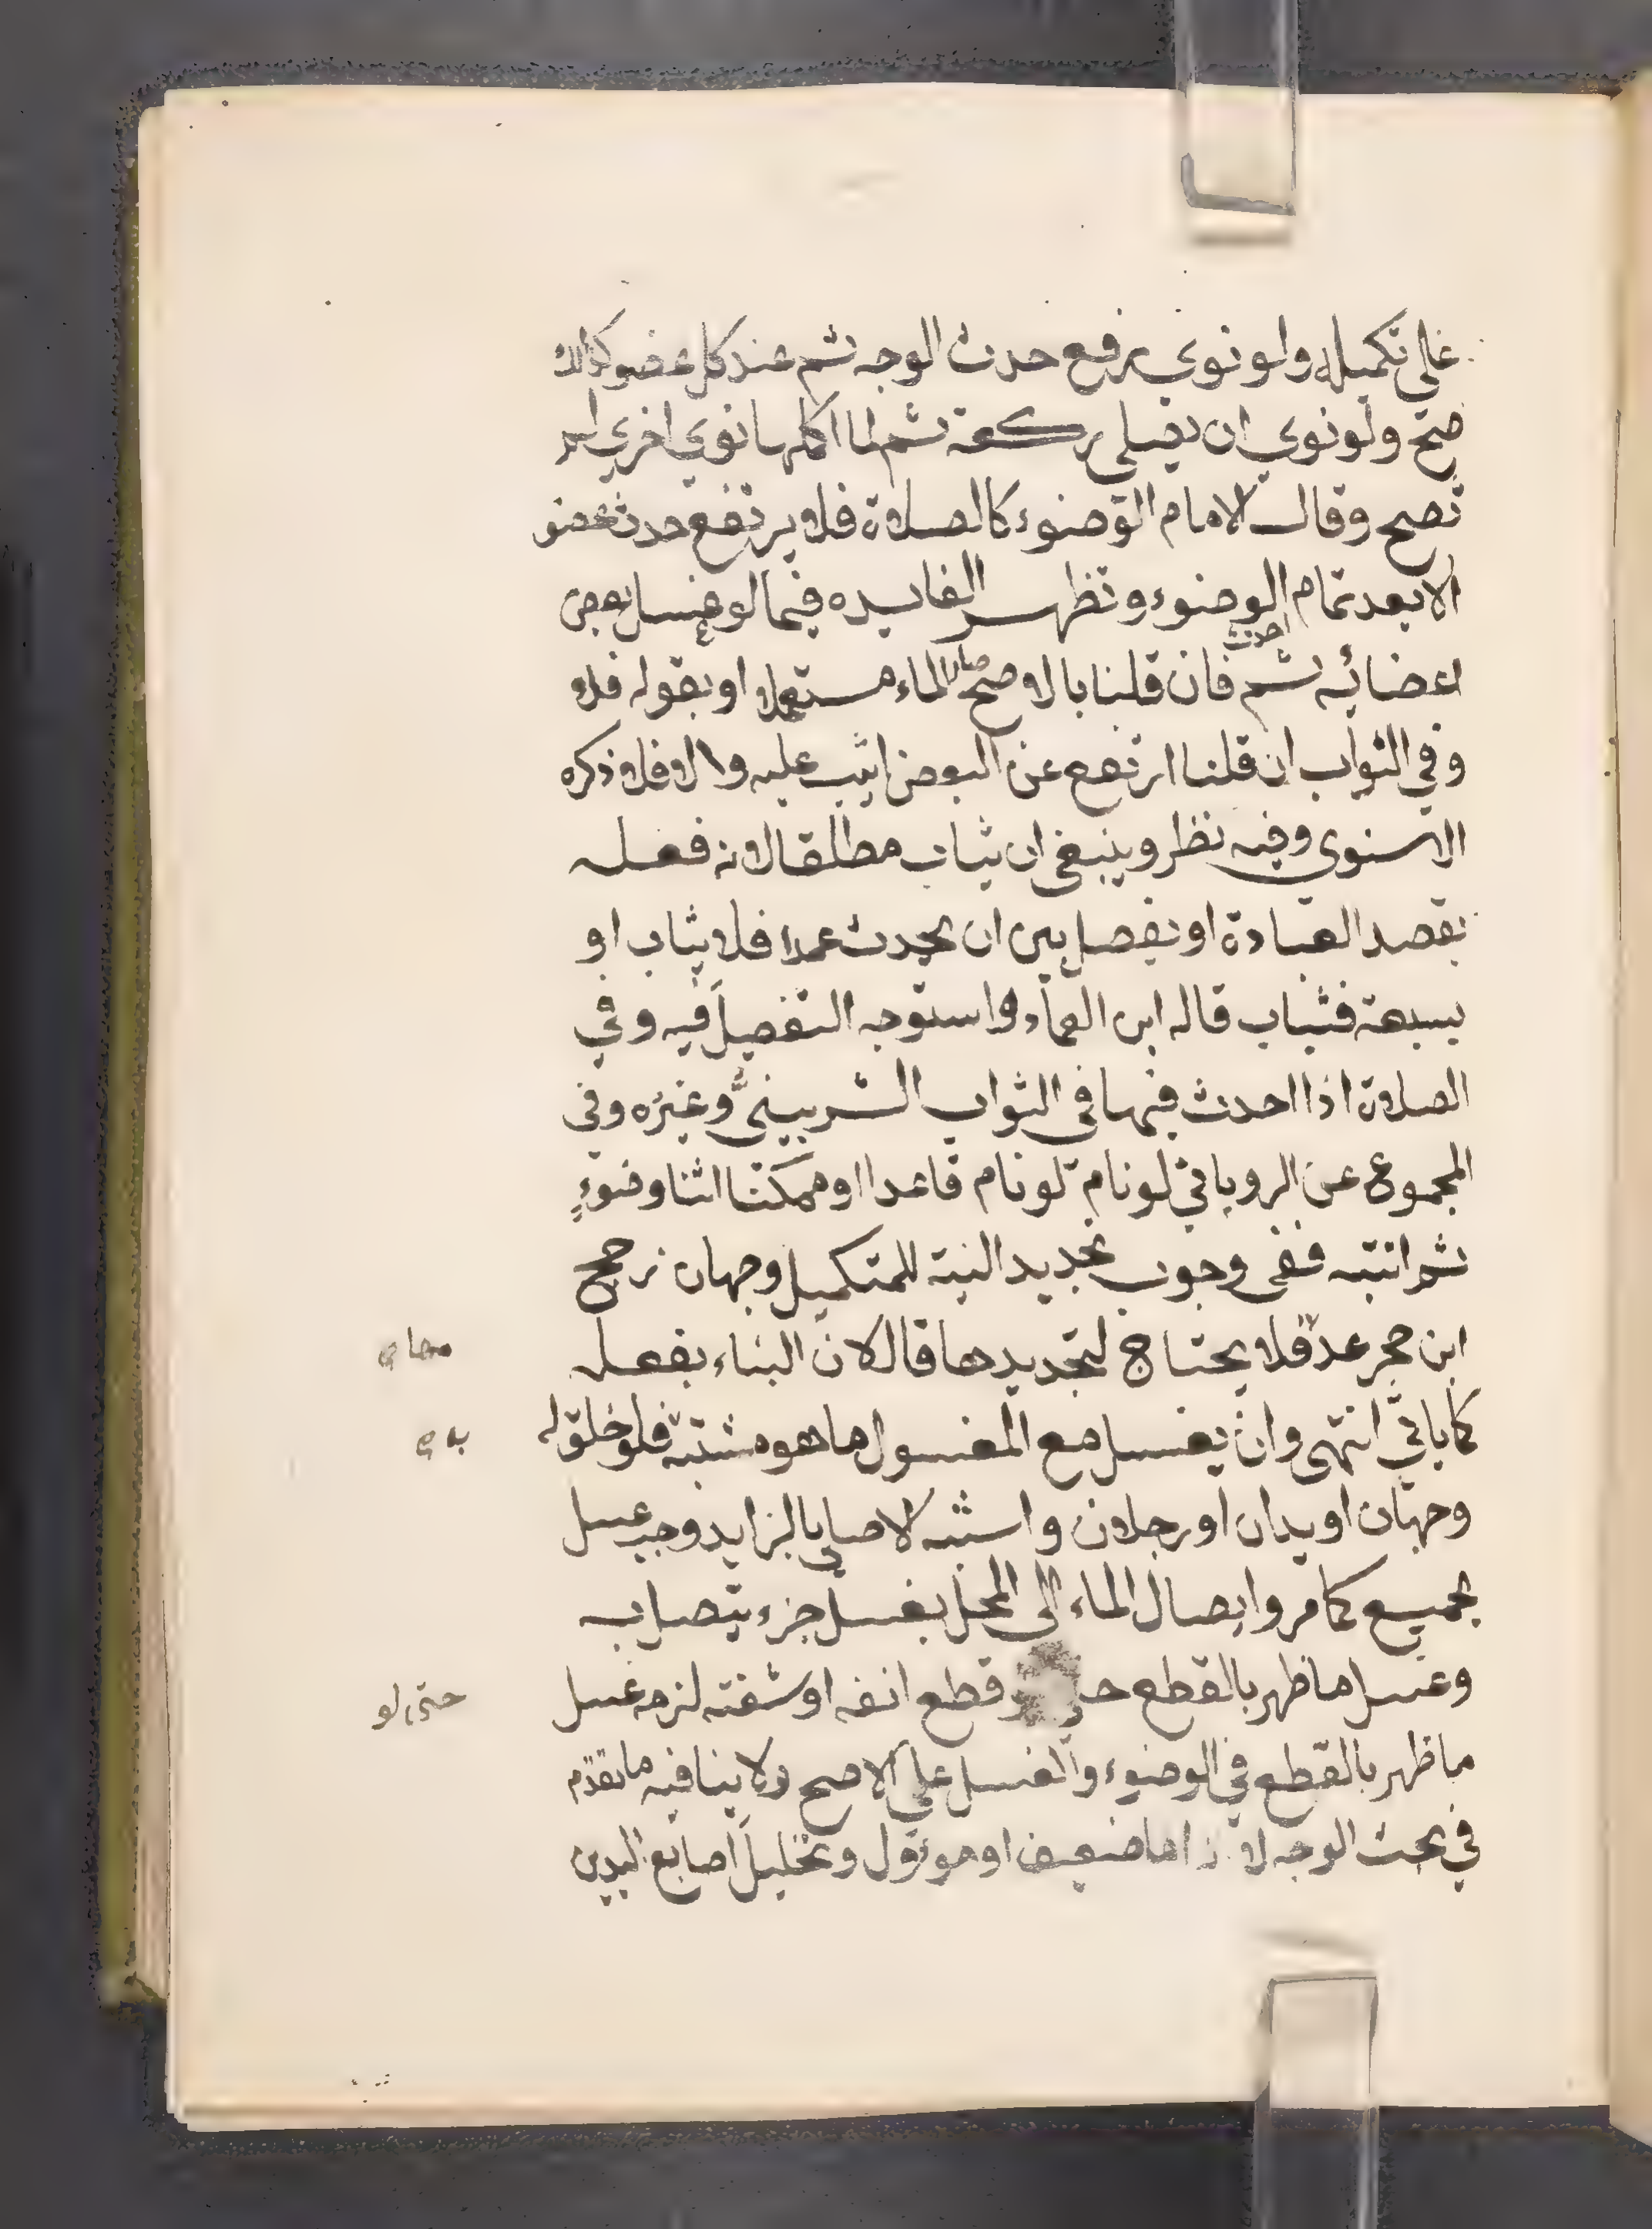 على تكميله ولو نوي رفع حدث الوجه ثم عند كل عضو كذلك
صح ولو نوي ان يصلى ركعة ثم لما اكملها نوي اخري لم
تصح وقال الامام الوضوء كالصلاة فلا يرتفع حدث عضو
الا بعد تمام الوضوء وتظهر الفايده فيما لو غسل بعض
اعضائه ثم احدث فان قلنا بالاصح صار الماء مستعملا او بقوله فلا
وفي الثواب ان قلنا ارتفع عن البعض اثيب عليه والا فلا ذكره
الاسنوي وفيه نظر وينبغي ان يثاب مطلقا لانه فعله
بقصد العبادة او نفصل بين ان يحدث عمدا فلا يثاب او
بسبعة فثياب قاله ابن العماد واستوجه التفصيل فيه وفي
الصلاة اذا احدث فيها في الثواب الشربيني وغيره وفي
المجموع عن الروياني لو نام لو نام قاعدا او ممكنا اثنا وضوء
ثم انتبه ففي وجوب تجديد النية للمتكميل وجهان رجح
ابن حجر فلا يحتاج لتجديدها قال لان البناء بفعله
كما ياتي انتهى وان يغسل مع المغسول ما هو مشتبه فلو خلق له
وجهان او يدان او رجلان واشتبه الاصلي بالزايد وجب غسل
جميع كما مر وايصال الماء الى المحل بغسل جزء يتصل به
وغسل ما ظهر بالقطع قطع انفه او شفته لزمه غسل
ما ظهر بالقطع في الوضوء والغسل علي الاصح ولا ينافيه ما تقدم
في بحث الوجه اما ضعيف او موءول وتخليل اصابع اليدين
حتى لو